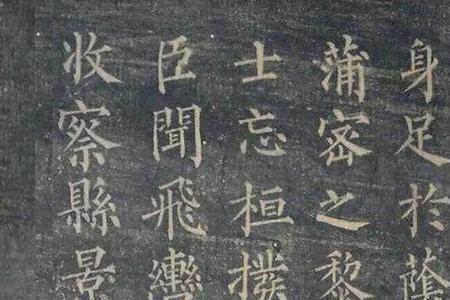 身足於蔭
蒲密之黎
士忘桓撥
臣聞飛轡
收察縣景